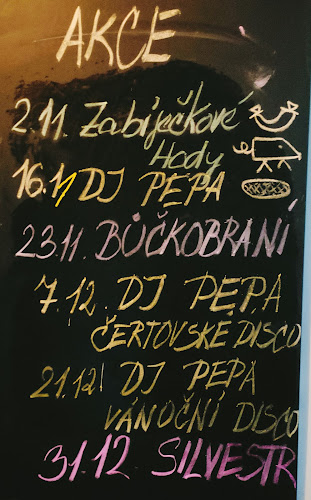 AKCE
2.11. Zabíječkové
Hody
16.11 DJ PEPA
23.11. BŮČKOBRANÍ
7.12. DJ PEPA
ČERTOVSKÉ DISCO
21.12! DJ PEPA
VÁNOČNÍ DISCO
31.12 SILVESTR